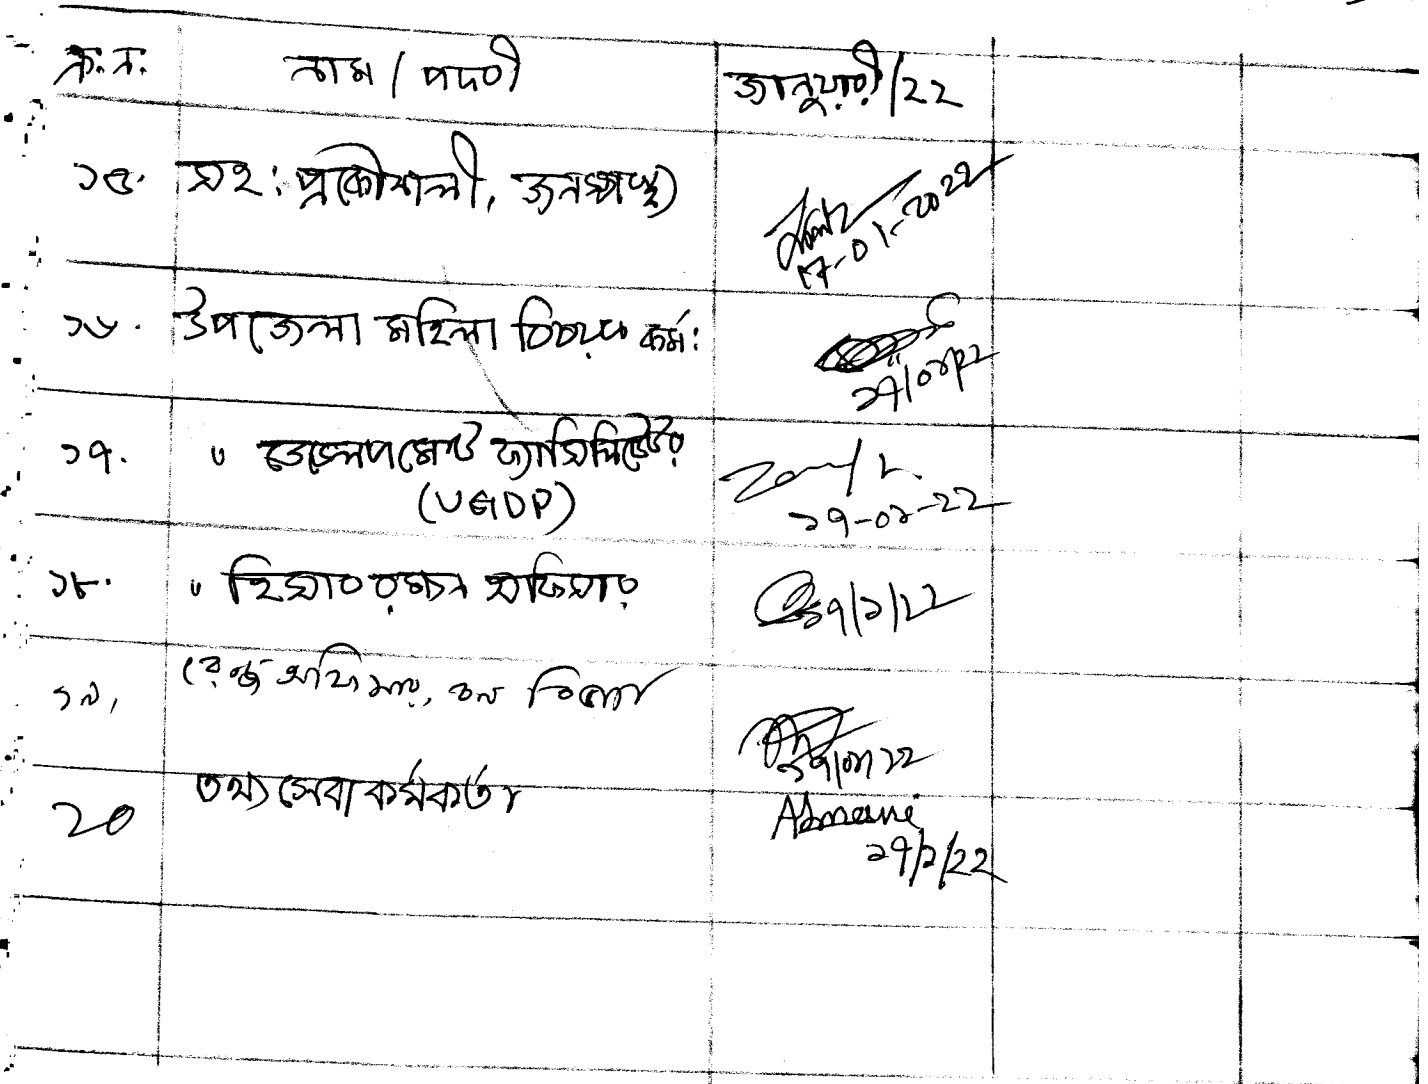 ক্র: ন: নাম / পদবী জানুয়ারী/২২
১৫. সহ: প্রকৌশলী, জনস্বাস্থ্য
17-01-2022
১৬. উপজেলা মহিলা বিষয়ক কর্ম:
১৭/০১/২২
১৭. " ডেভেলপমেন্ট ফ্যাসিলিটেটর
(UGDP)
১৭-০১-২২
১৮. " হিসাব রক্ষন অফিসার ১৭/১/২২
১৯. রেঞ্জ অফিসার, বন বিভাগ
১৭/০১/২২
২০ তথ্যসেবা কর্মকর্তা
১৭/১/২২